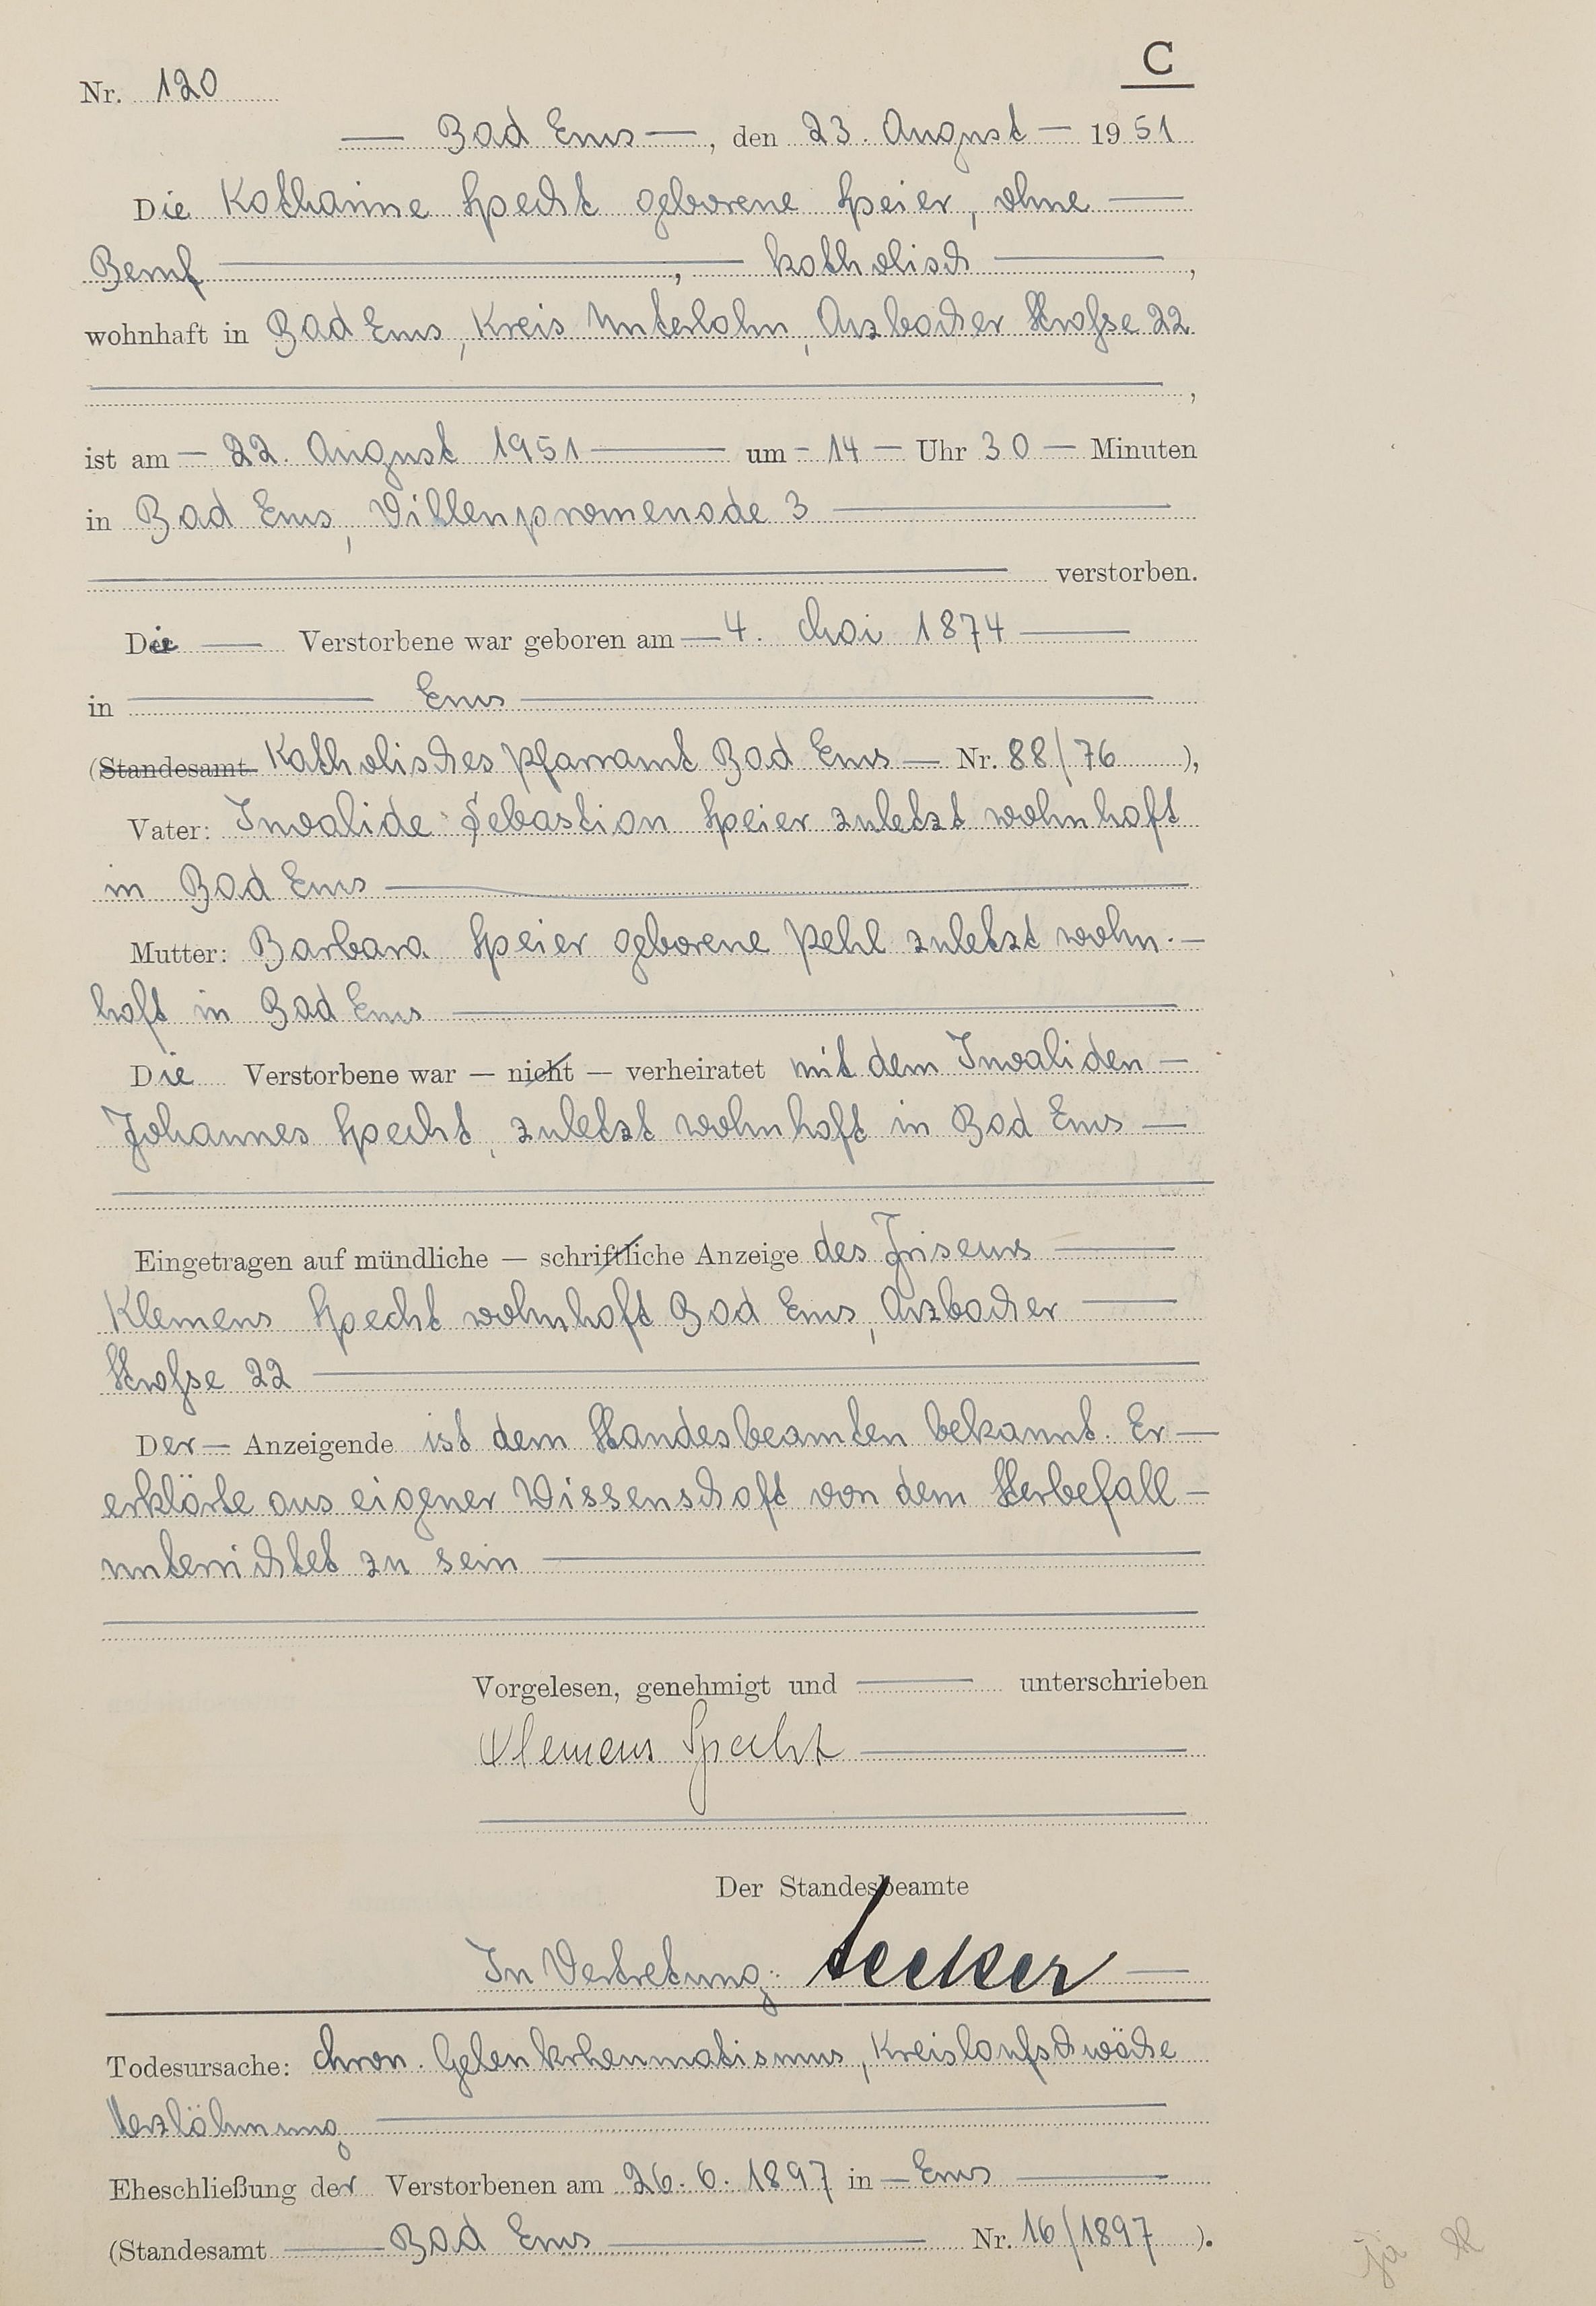 C
Nr. 120
— Bad Ems —, den 23. August — 1951
Die Katharine Specht geborene Speier, ohne —
Beruf —, — katholisch —,
wohnhaft in Bad Ems, Kreis Unterlahn, Arzbacher Strasse 22
,
ist am — 22. August 1951 — um — 14 — Uhr 30 — Minuten
in Bad Ems, Villenpromenade 3 —
— verstorben.
Die — Verstorbene war geboren am — 4. Mai 1874 —
in — Ems —
(Standesamt Katholisches Pfarramt Bad Ems — Nr. 88/76 ),
Vater: Invalide Sebastian Speier zuletzt wohnhaft
in Bad Ems —
Mutter: Barbara Speier geborene Pehl zuletzt wohn-—
haft in Bad Ems —
Die Verstorbene war — nicht — verheiratet mit dem Invaliden —
Johannes Specht, zuletzt wohnhaft in Bad Ems —
Eingetragen auf mündliche — schriftliche Anzeige des Friseurs —
Klemens Specht wohnhaft Bad Ems, Arzbacher —
Strasse 22 —
Der — Anzeigende ist dem Standesbeamten bekannt. Er —
erklärte aus eigener Wissenschaft von dem Sterbefall —
unterrichtet zu sein —
Vorgelesen, genehmigt und — unterschrieben
Klemens Specht —
Der Standesbeamte
In Vertretung: —
Todesursache: chron. Gelenkrheumatismus, Kreislaufschwäche
Herzlähmung —
Eheschließung der Verstorbenen am 26.6.1897 in — Ems —
(Standesamt — Bad Ems — Nr. 16/1897 ).
ja